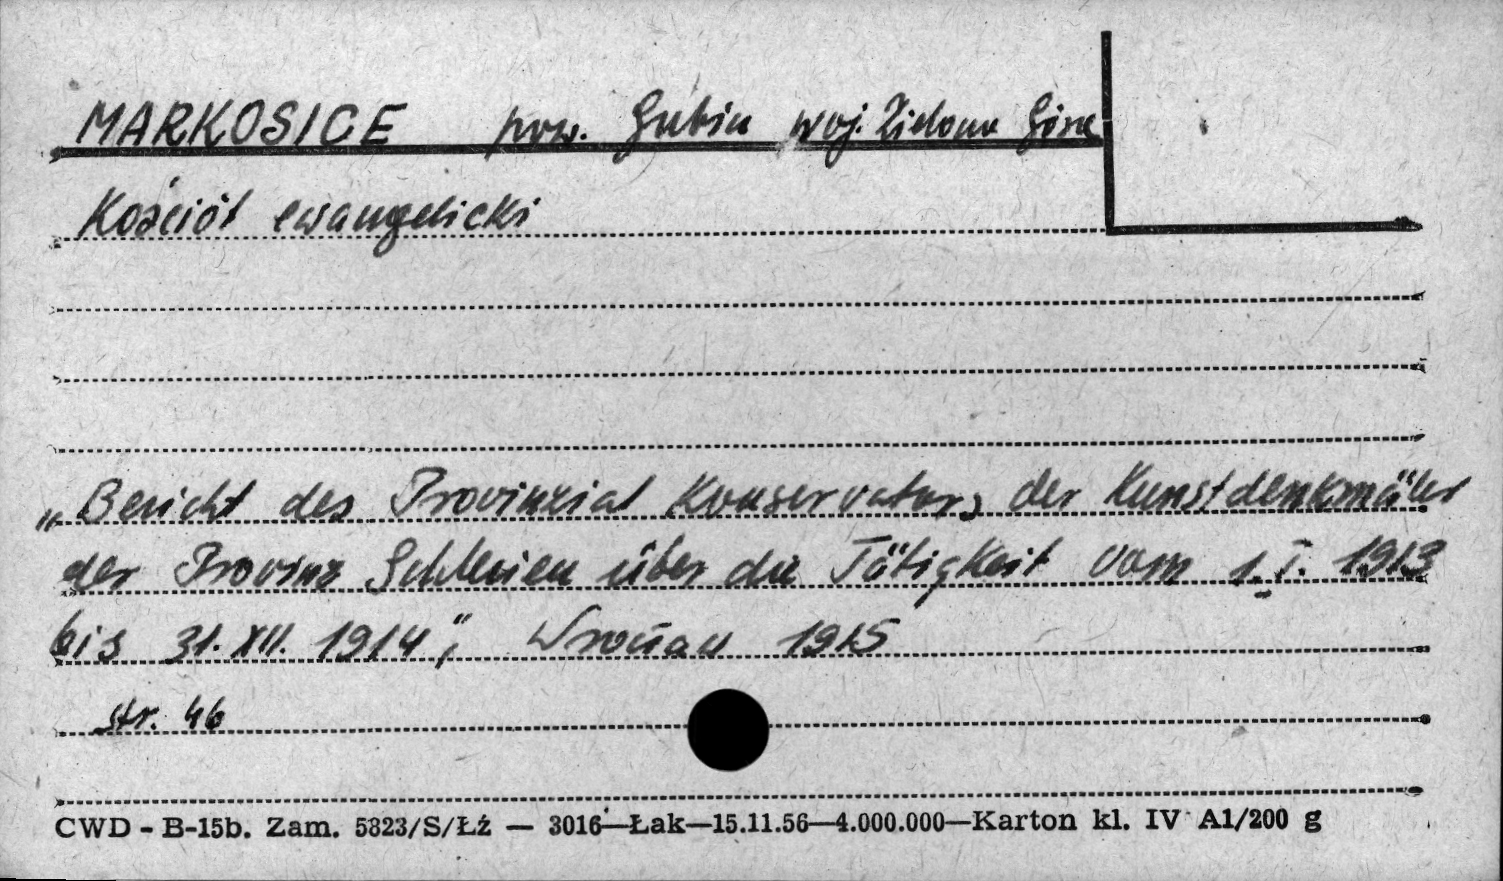 MARKOSICE pow. Gubin woj. Zielona Góra
Kościół ewangelicki
„Bericht des Provinzial Konservators der Kunstdenkmäler
der Provinz Schlesien über die Tätigkeit vom 1.I. 1913
bis 31.XII. 1914", Wrocław 1915
str. 46
CWD - B-15b. Zam. 5823/S/Łż — 3016—Łak—15.11.56—4.000.000—Karton kl. IV A1/200 g